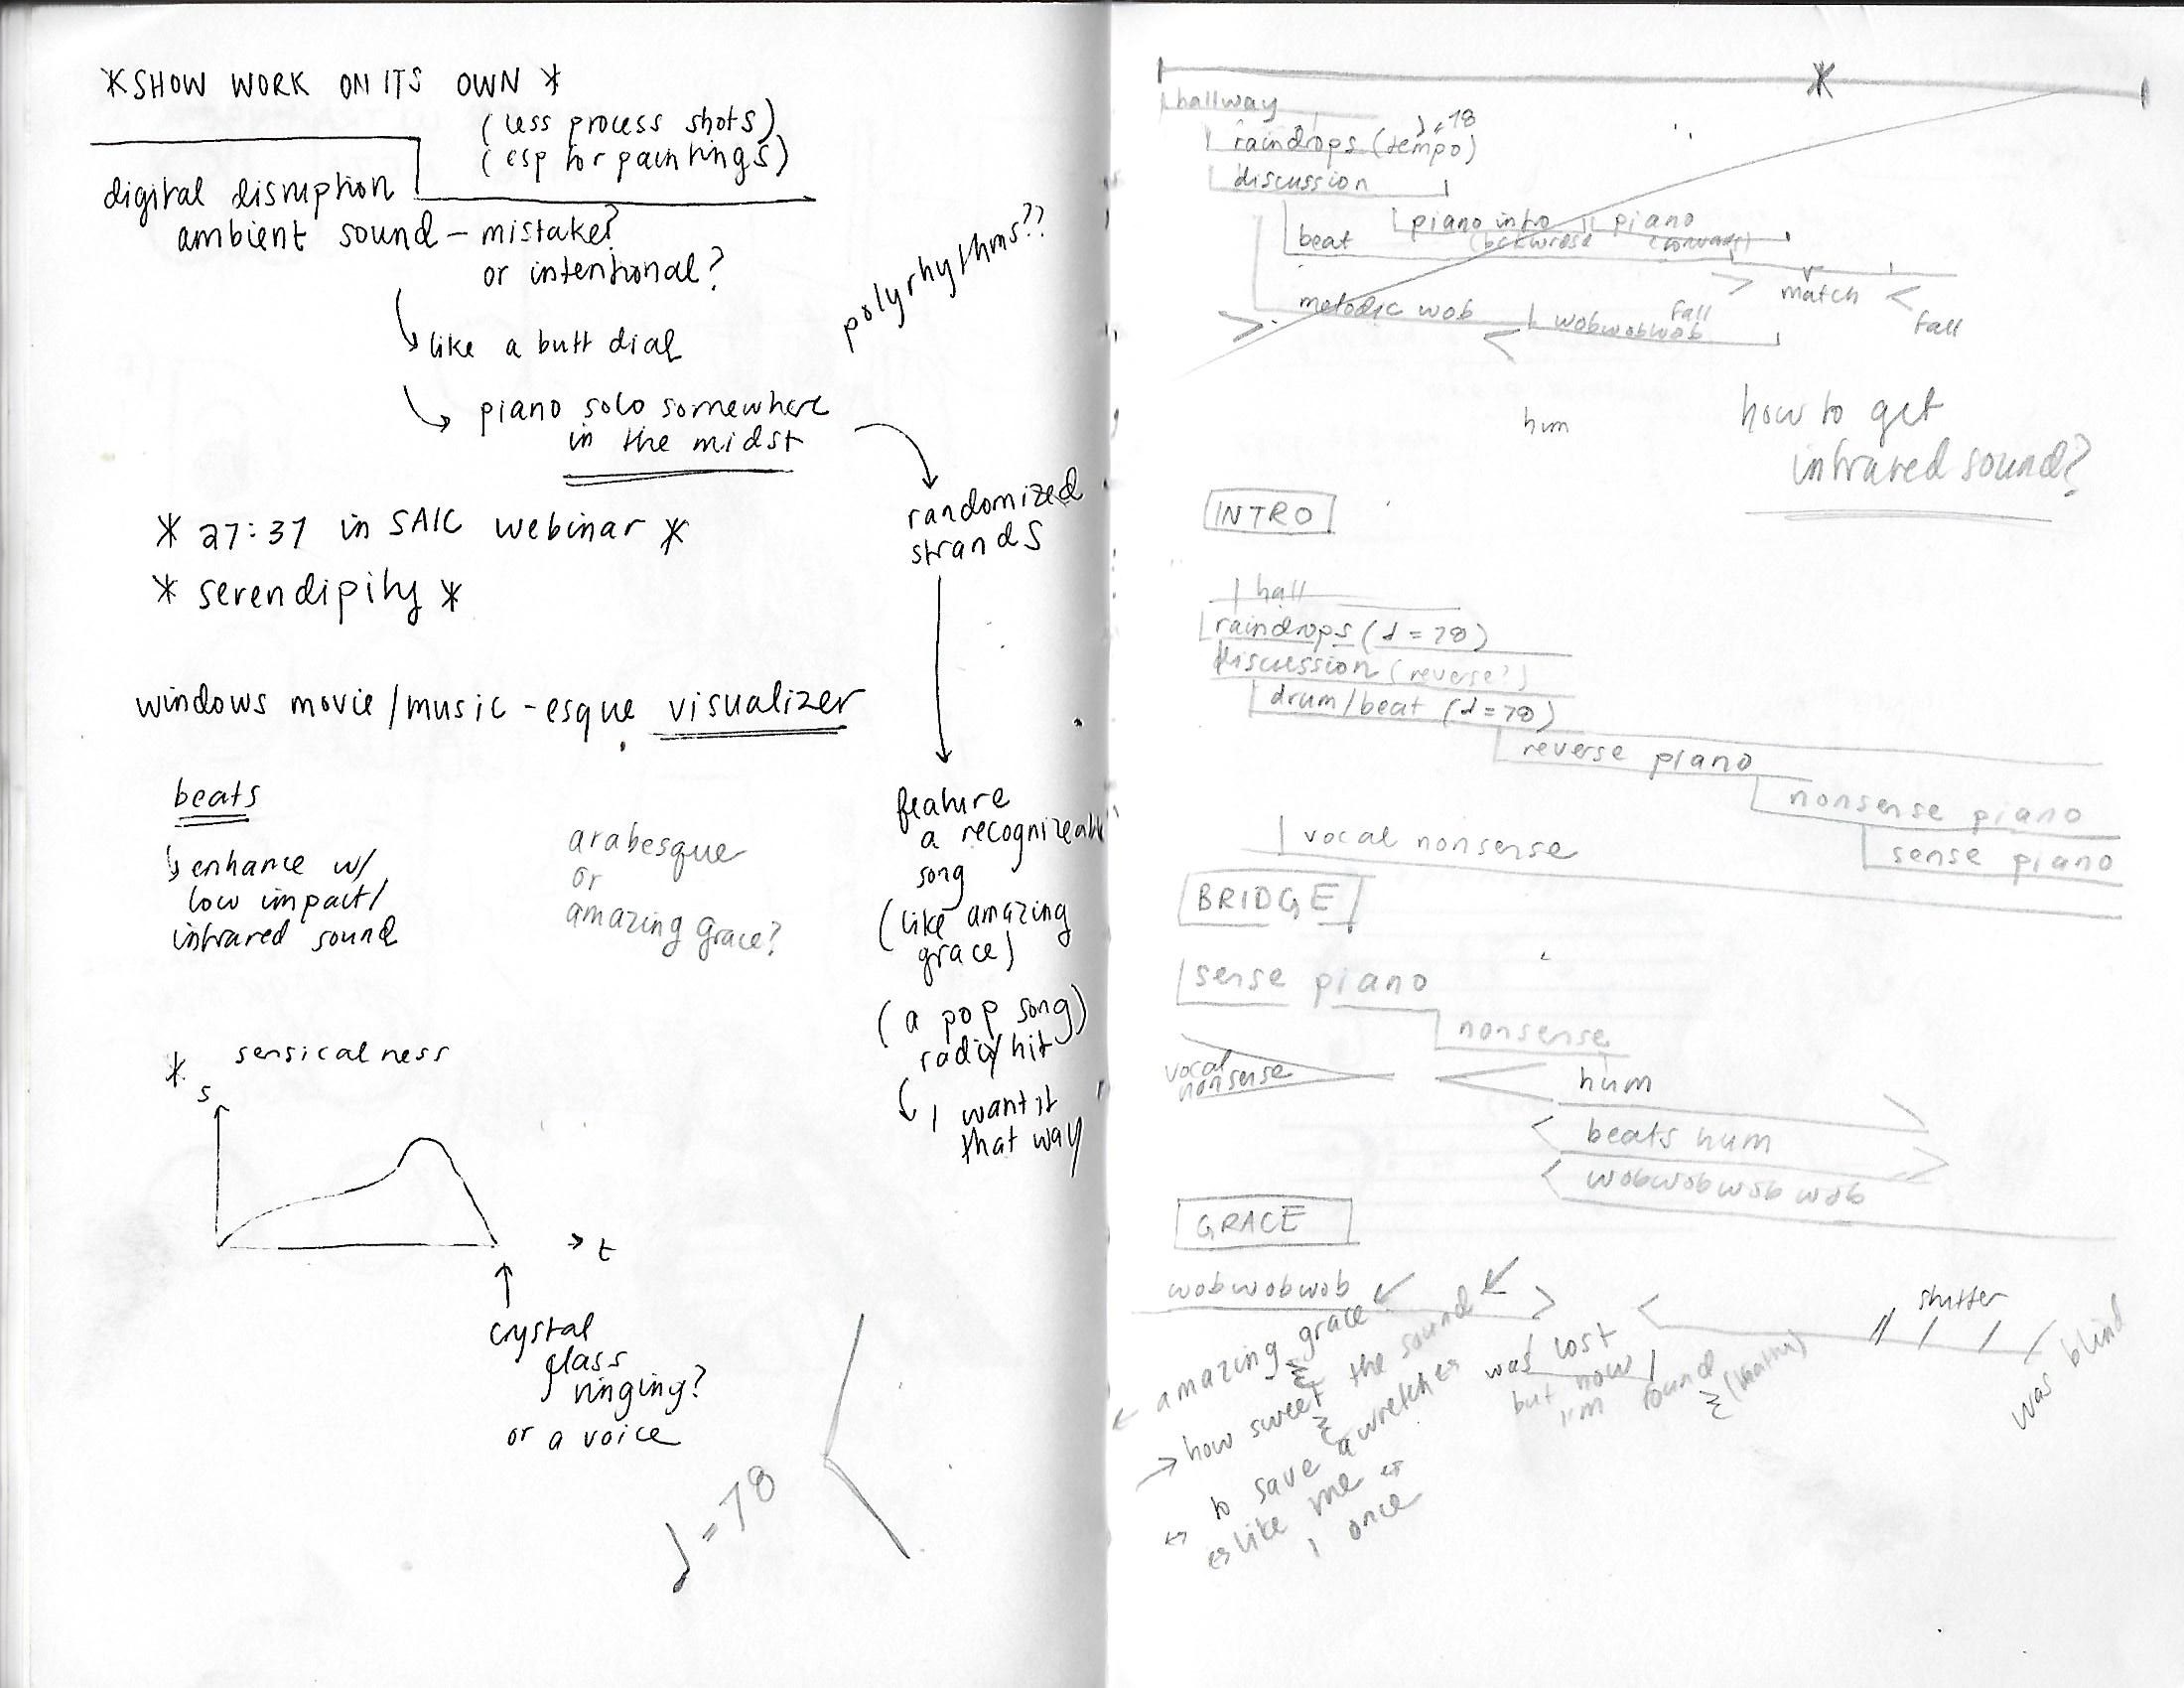 *SHOW WORK ON ITS OWN *
(less process shots)
(esp for paintings)
digital disruption
ambient sound - mistake?
or intentional?
like a butt dial
piano solo somewhere
in the midst
polyrhythms??
randomized
strands
* 27:37 in SAIC webinar *
* serendipity *
windows movie/music-esque visualizer
beats
enhance w/
low impact/
infrared sound
arabesque
or
amazing grace?
feature
a recognizeable
song
(like amazing
grace)
(a pop song)
radio/hit
I want it
that way
* sensicalness
s
→ t
crystal
glass
ringing?
or a voice
♩=78
hallway
raindrops (tempo)
♩=78
discussion
piano intro
piano
beat
(backwards)
(forward)
> match <
fall
melodic wob
fall
wobwobwob
hum
how to get
infrared sound?
INTRO
hall
raindrops (♩=78)
discussion (reverse?)
drum/beat (♩=78)
reverse piano
nonsense piano
vocal nonsense
sense piano
BRIDGE
sense piano
nonsense
vocal
nonsense
hum
beats hum
wobwobwobwob
GRACE
wobwobwob
stutter
amazing grace
how sweet the sound
to save a wretch
like me
I once
was lost
but now
I'm found
was blind